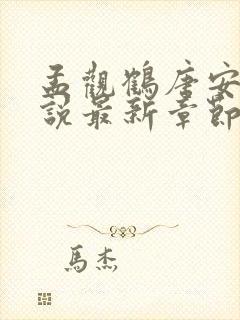 孟觀鶴唐安
說最新章節
馬杰